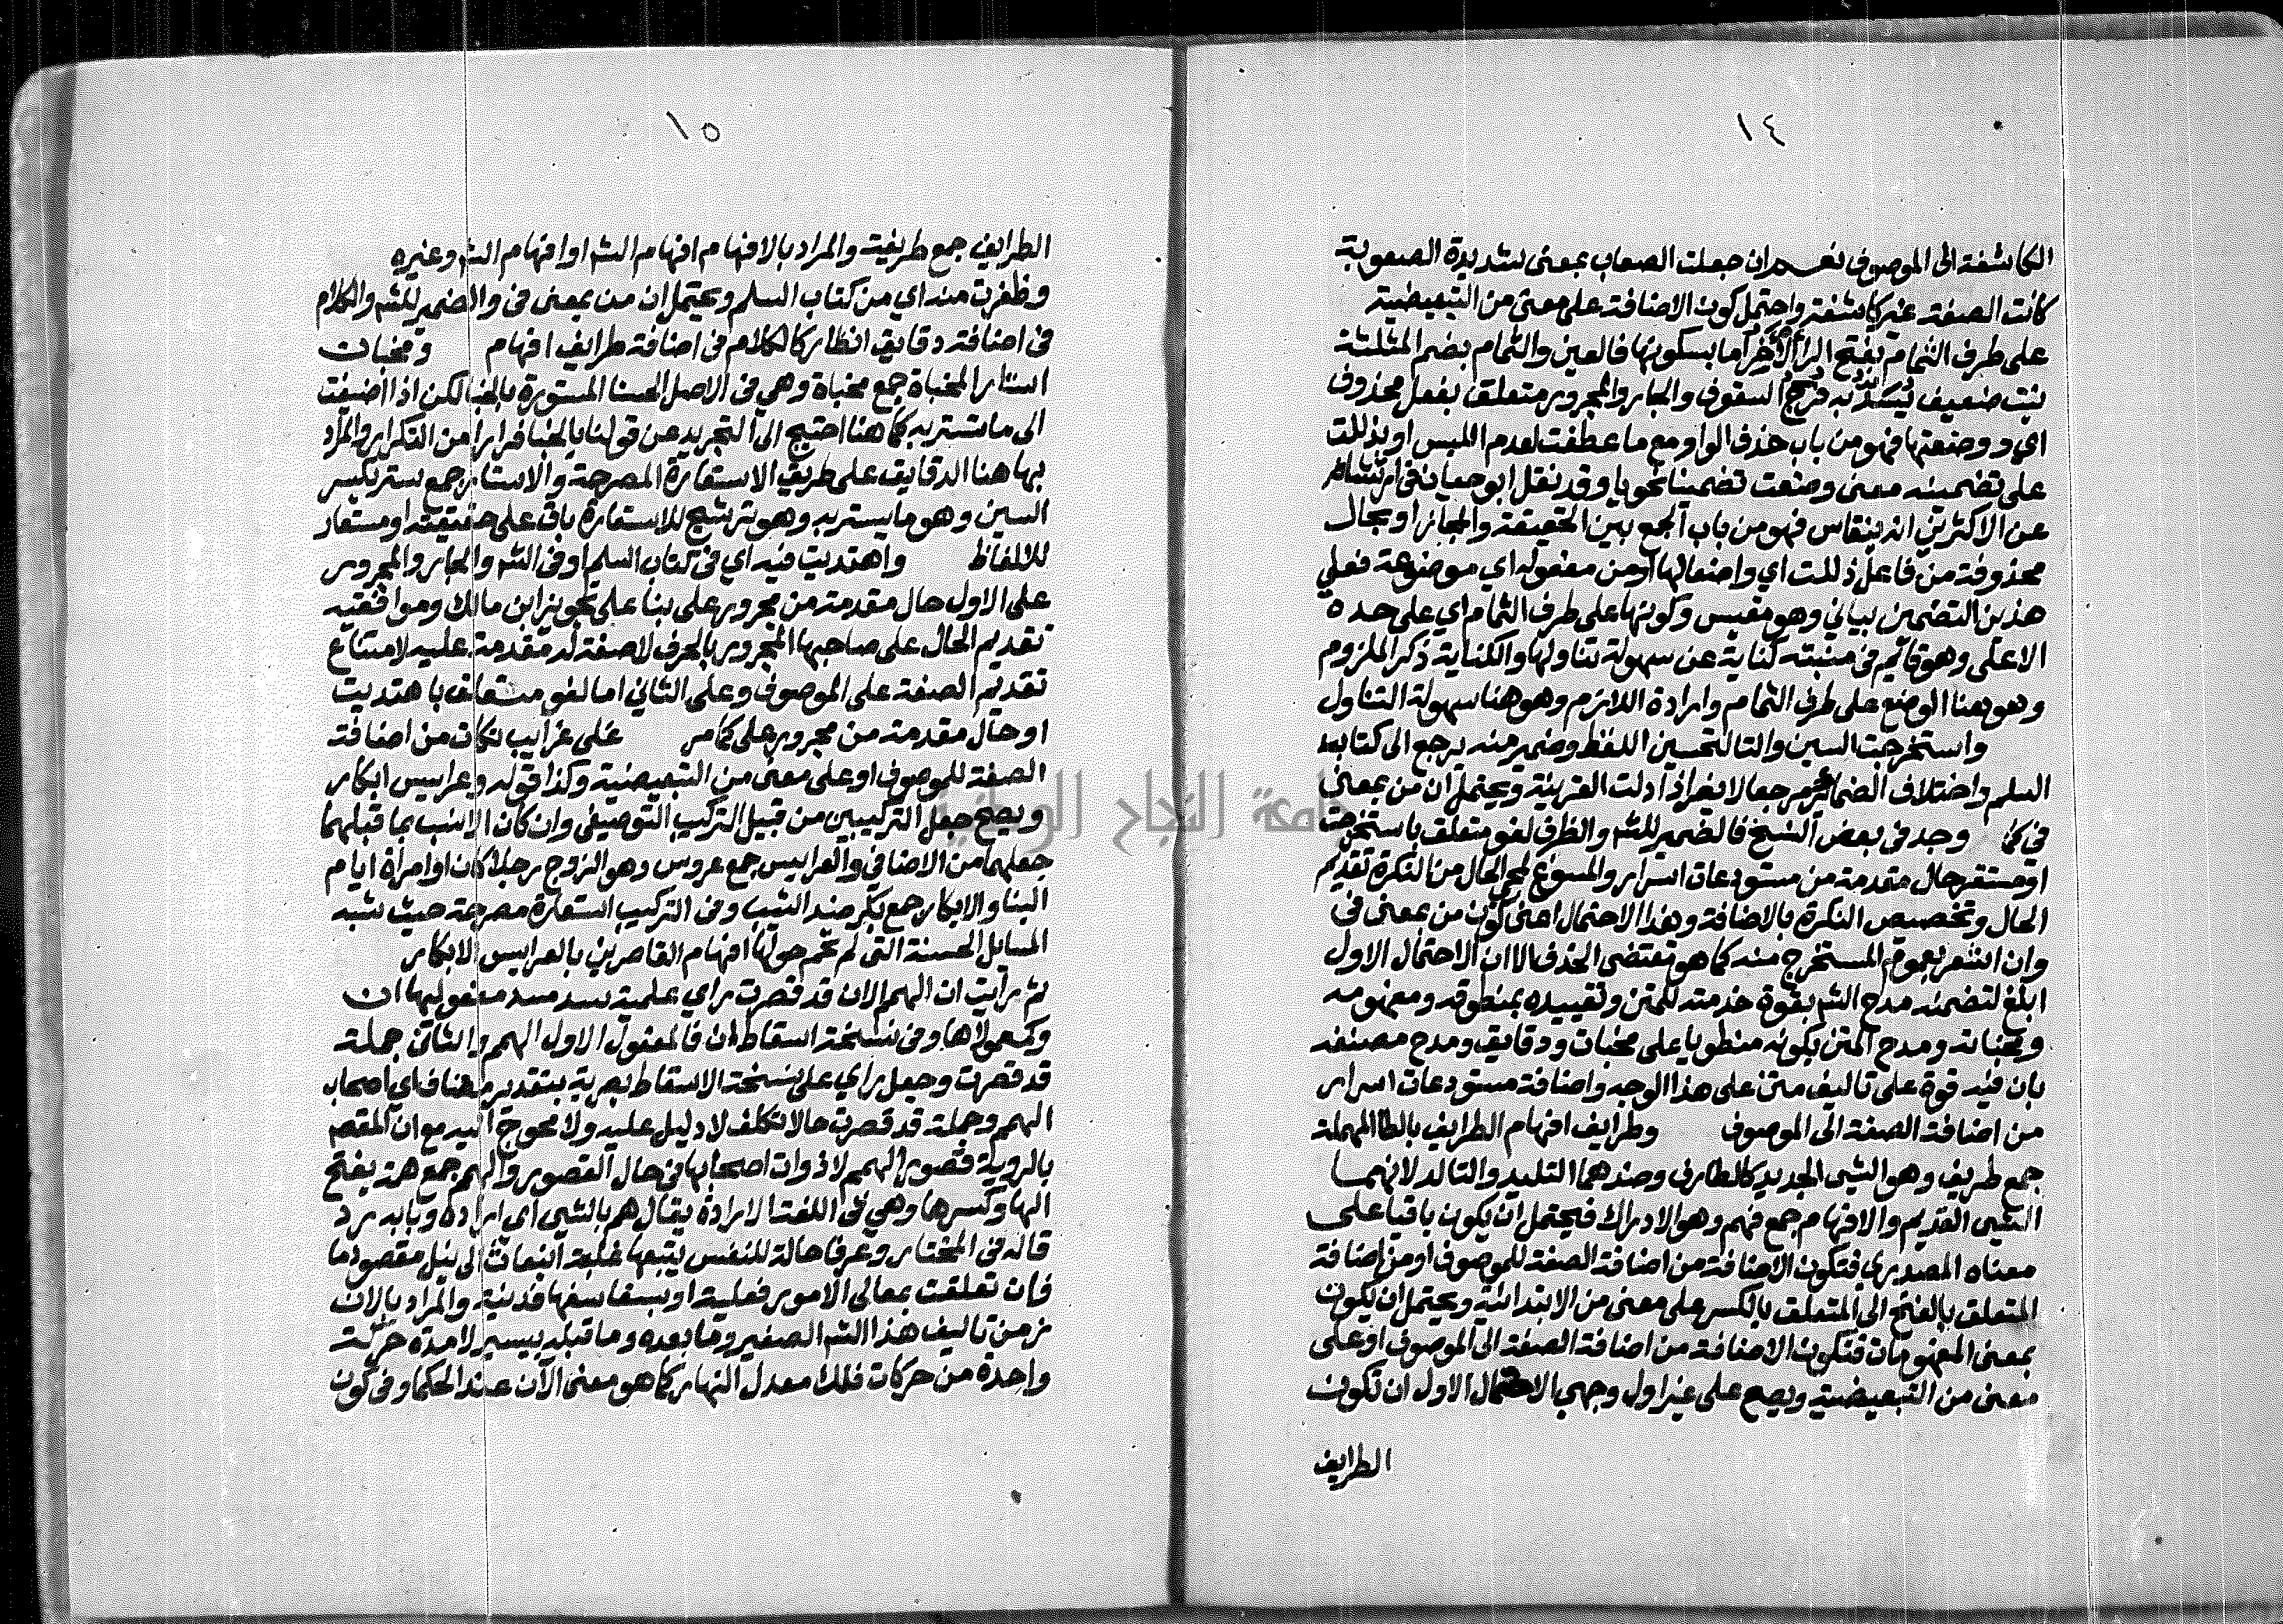 ١٤
الكاشفة الى الموصوف نعم ان جعلت الصعاب بمعنى شديدة الصعوبة
كانت الصفة غير كاشفة واحتمل كون الاضافة على معنى من التبعيضية
على طرف الثمام بفتح الرا الاخر اما بسكونها فالعين والثمام بضم المثلثة
نبت ضعيف يسد به فرج السقوف والجار والمجرور متعلق بفعل محذوف
اي ووضعتها فهو من باب حذف الواو مع ما عطفت لعدم اللبس او بذللت
على تضمينه معنى وضعت تضمينا نحويا وقد نقل ابو حيان في ارتشافه
عن الاكثرين انه ينقاس فهو من باب الجمع بين الحقيقة والمجاز او بحال
محذوفة من فاعل ذللت اي واضعا لها او من مفعوله اي موضوعة فعلى
هذين التضمين بياني وهو مقيس وكونها على طرف الثمام اي على حده
الاعلى وهو قائم في منبته كناية عن سهولة تناولها والكناية ذكر الملزوم
وهو هنا الوضع على طرف الثمام وارادة اللازم وهو هنا سهولة التناول
واستخرجت السين والتا لتحسين اللفظ وضمير منه يرجع الى كتابه
السلم واختلاف الضماير مرجعا لا يضر اذا دلت القرينة ويحتمل ان من بمعنى
في كما وجد في بعض النسخ فالضمير للشم والظرف لغو متعلق باستخرجت
او مستقر حال مقدمة من مستودعات اسرار والمسوغ لمجي الحال من النكرة تقديم
الحال وتخصيص النكرة بالاضافة وهذا الاحتمال اعني كون من بمعنى في
وان اشعر بعوق المستخرج منه كما هو مقتضى الحذف الا ان الاحتمال الاول
ابلغ لتضمنه مدح الشم بقوة خدمته للمتن وتقييده بمنطوقه ومفهومه
ومخباته ومدح المتن بكونه منطويا على مخبات ودقايق ومدح مصنفه
بان فيه قوة على تاليف متن على هذا الوجه واضافة مستودعات اسرار
من اضافة الصفة الى الموصوف وطرايف افهام الطرايف بالطا المهملة
جمع طريف وهو الشي الجديد كالطارف وضدهما التليد والتالد لانهما
الشي القديم والافهام جمع فهم وهو الادراك فيحتمل ان يكون باقيا على
معناه المصدري فتكون الاضافة من اضافة الصفة للموصوف او من اضافة
المتعلق بالفتح الى المتعلق بالكسر على معنى من الابتدائية ويحتمل ان يكون
بمعنى المفهومات فتكون الاضافة من اضافة الصفة الى الموصوف او على
معنى من التبعيضية ويصح على غير اول وجهي الاحتمال الاول ان تكون
الطرايف
١٥
الطرايف جمع طريفة والمراد بالافهام افهام الشم او افهام الشم وغيره
وظفرت منه اي من كتاب السلم ويحتمل ان من بمعنى في والضمير للشم والكلام
في اضافة دقايق انظار كالكلام في اضافة طرايف افهام ومخبات
استار المخباة جمع مخباة وهي في الاصل الحسنا المستورة بالخبا لكن اذا اضيفت
الى ما تستر به كما هنا احتيج الى التجريد عن قولنا بالخبا فرارا من التكرار والمراد
بها هنا الدقايق على طريق الاستعارة المصرحة والاستار جمع ستر بكسر
السين وهو ما يستر به وهو ترشيح للاستعارة باق على حقيقته او مستعار
للالفاظ واهتديت فيه اي في كتاب السلم او في الشم والجار والمجرور
على الاول حال مقدمة من مجرور على بنا على تجويز ابن مالك وموافقيه
تقديم الحال على صاحبها المجرور بالحرف لا صفة له مقدمة عليه لامتناع
تقديم الصفة على الموصوف وعلى الثاني اما لغو متعلق باهتديت
او حال مقدمة من مجرور على كما مر على غرايب نكات من اضافة
الصفة للموصوف او على معنى من التبعيضية وكذا قوله وعرايس ابكار
ويصح جعل التركيبين من قبيل التركيب التوصيفي وان كان الانسب بما قبلهما
جعلهما من الاضافي والعرايس جمع عروس وهو الزوج رجلا كان او امراة ايام
البنا والابكار جمع بكر ضد الثيب وفي التركيب استعارة مصرحة حيث شبه
المسائل الحسنة التي لم تحم حولها افهام القاصرين بالعرايس الابكار
ثم رأيت ان الهمم الان قد قصرت رأي علمية يسد مسد مفعوليها ان
ومعمولاها وفي نسخة اسقاط ان فالمفعول الاول الهمم والثاني جملة
قد قصرت وجعل رأي على نسخة الاسقاط بصرية بتقدير مضاف اي اصحاب
الهمم وجملة قد قصرت حالا تكلف لا دليل عليه ولا محوج اليه مع ان المقصود
بالروية قصور الهمم لا ذوات اصحابها في حال القصور والهمم جمع همة بفتح
الها وكسرها وهي في اللغة الارادة يقال هم بالشي اي اراده وبابه رد
قاله في المختار وعرفا حالة للنفس يتبعها غلبة انبعاث الى نيل مقصود ما
فان تعلقت بمعالي الامور فعلية او بسفاسفها فدنية والمراد بالان
زمن تاليف هذا الشم الصغير وما بعده وما قبله بيسير لا مدة حركة
واحدة من حركات فلك معدل النهار كما هو معنى الآن عند الحكما وفي كون
جامعة النجاح الوطنية